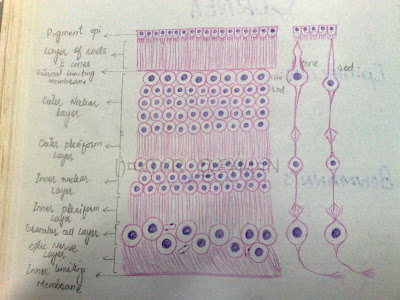 Pigment epi
Layer of rods
& cones
External limiting
Membrane
Outer Nuclear
layer
Outer plexiform
Layer
Inner nuclear
Layer
Inner plexiform
Layer
Granular cell Layer
optic Nerve
Layer
Inner limiting
Membrane
cone
rod
cone
rod